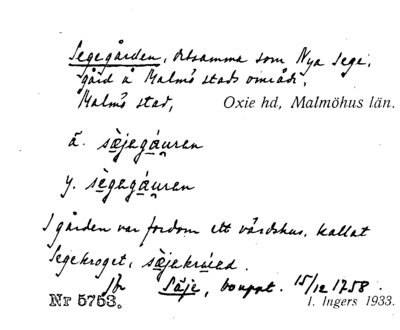 Segegården, detsamma som Nya Sege,
gård å Malmö stads område,
Malmö stad, Oxie hd, Malmöhus län.
ä. sæ̀jegáuren
y. sègegáuren
I gården var fordom ett värdshus, kallat
Segekroget, sæ̀jekrúed.
Jfr Säje, bouppt. 15/12 1758.
Nr 5753. I. Ingers 1933.